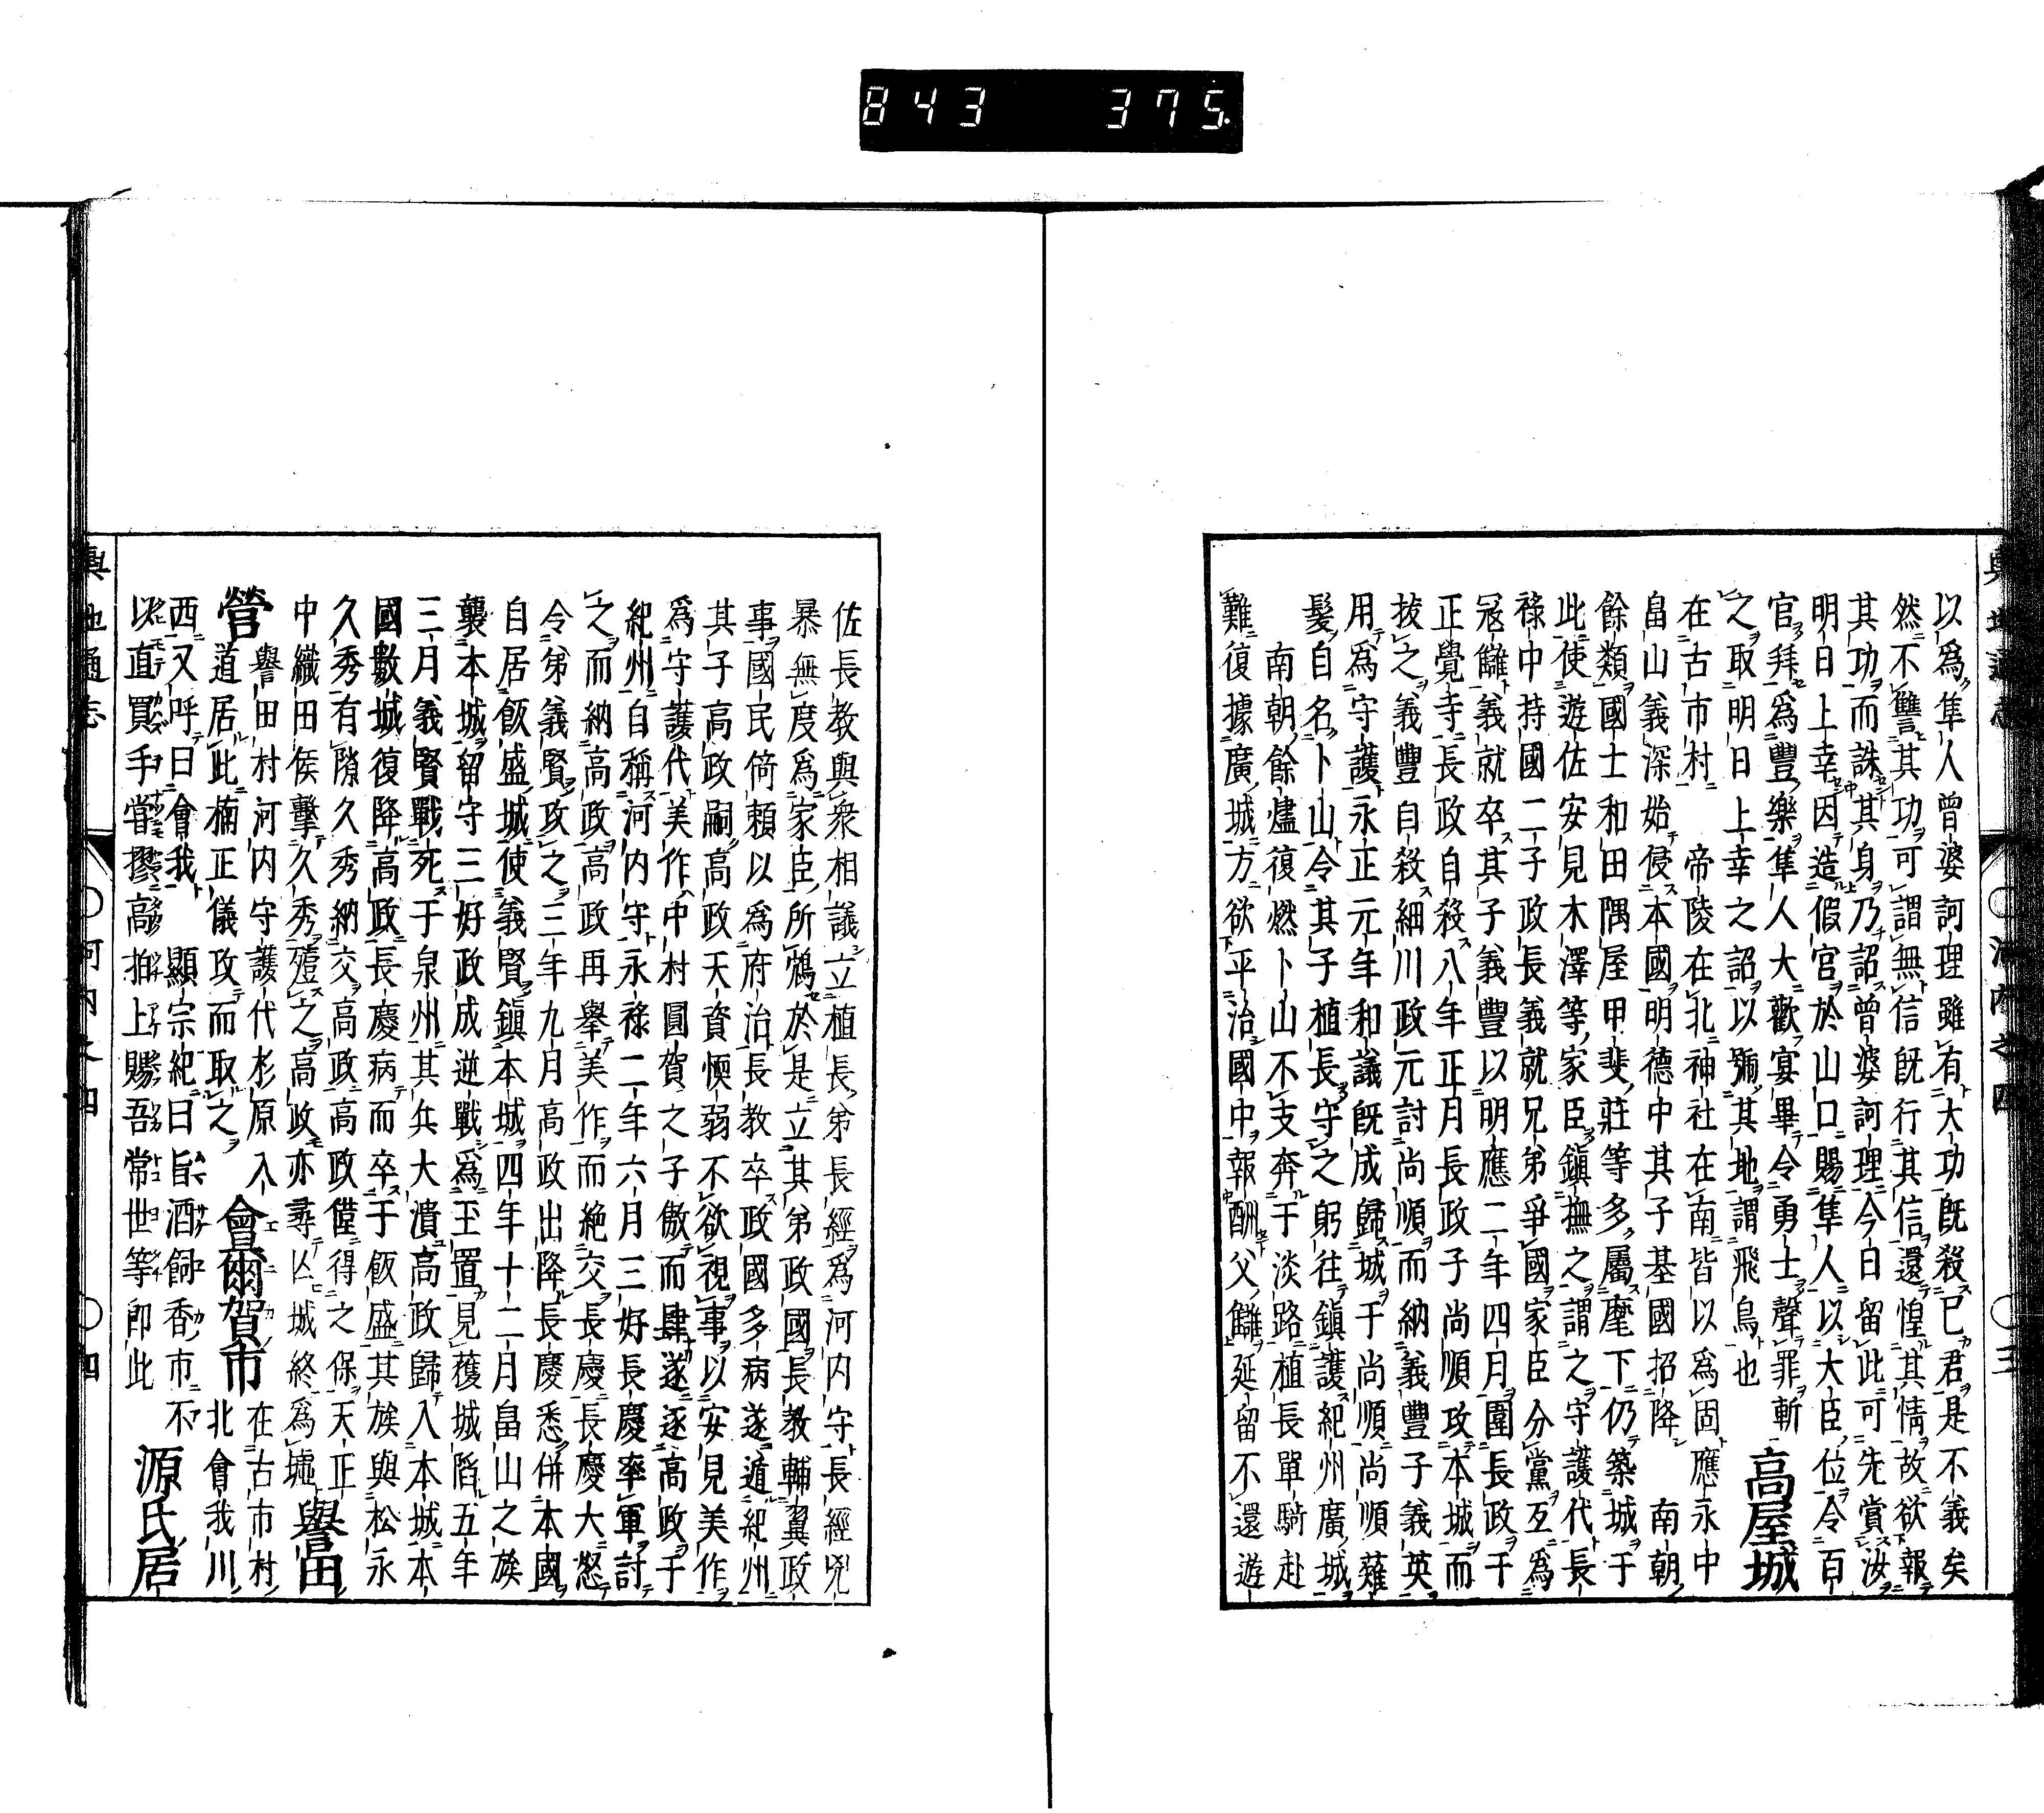 843 375.
以爲隼人曾婆訶理雖有大功既殺已君是不義矣
然不讐其功可謂無信既行其信還惶其情故欲報
其功而誅其身乃詔曾婆訶理今日留此可先賞汝
明日上幸因造假宮於山口賜隼人以大臣位令百
官拜爲豐樂隼人大歡宴畢令勇士聲罪斬
之取明日上幸之詔以號其地謂飛鳥也
高屋城
在古市村 帝陵在北神社在南皆以爲固應永中
畠山義深始侵本國明德中其子基國招降 南朝
餘類國士和田隅屋甲斐莊等多屬麾下仍築城于
此使遊佐安見木澤等家臣鎭撫之謂之守護代長
祿中持國二子政長義就兄弟爭國家臣分黨互爲
冦讎義就卒其子義豐以明應二年四月圍長政于
正覺寺長政自殺八年正月長政子尚順攻本城而
拔之義豐自殺細川政元討尚順而納義豐子義英
用爲守護永正元年和議既成歸城于尚順尚順薙
髮自名卜山令其子植長守之躬往鎭護紀州廣城
南朝餘燼復燃卜山不支奔于淡路植長單騎赴
難復據廣城方欲平治國中報酬父讎延留不還遊
佐長教與衆相議立植長弟長經爲河内守長經兇
暴無度爲家臣所鴆於是立其弟政國長教輔翼政
事國民倚賴以爲府治長教卒政國多病遂遁紀州
其子高政嗣高政天資愞弱不欲視事以安見美作
爲守護代美作中村圓賀之子傲而肆遂逐高政于
紀州自稱河内守永祿二年六月三好長慶率軍討
之而納高政高政再舉美作而絶交長慶長慶大怒
令弟義賢攻之三年九月高政出降長慶悉併本國
自居飯盛城使義賢鎭本城四年十二月畠山之族
襲本城留守三好政成逆戰爲玉置見蒦城䧟五年
三月義賢戰死于泉州其兵大潰高政歸入本城本
國數城復降高政長慶病而卒于飯盛其族與松永
久秀有隙久秀納交高政高政僅得之保天正
中織田侯擊久秀殪之高政亦尋亾城終爲墟
譽田
譽田村河内守護代杉原入
營道居此楠正儀攻而取之
會爾賀市
在古市村
北會我川
西又呼曰會我 顯宗紀曰旨酒餌香市不
以直買手掌摎亮拍上賜吾常世等即此
源氏居
輿地通志 ○河内之四 ○四